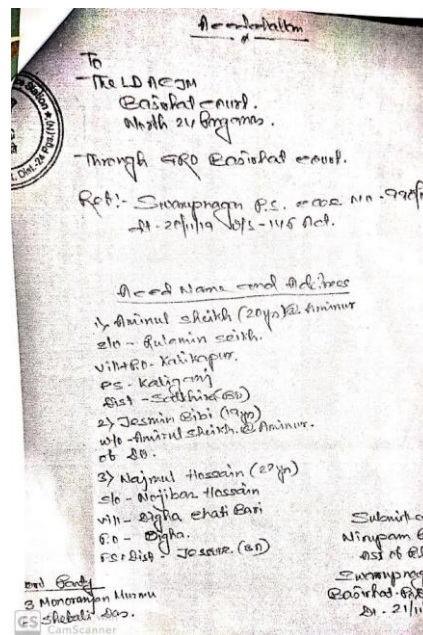 To
The LD ACJM
Basirhat Court.
North 24 Parganas.
Through GRO Basirhat Court.
Ref:- Swarupnagar P.S. Case No - 990/
dt - 20/11/19 U/S - 14
Accd Name and Address
1) Aminul Sheikh (20yrs) @ Aminur
S/o - Rulamin Seikh.
Vill+P.O - Kalikapur.
PS - Kaliganj
Dist - (BD)
2) Jesmin Bibi (19yrs)
W/o - Amirul Sheikh @ Aminur.
of do.
3) Najmul Hossain (27yrs)
S/o - Najibar Hossain
Vill - Digha Chati Bari
P.O - Digha.
PS+Dist - Jessore. (BD)
Station
Dist. 24 Pgs.(N)
Submit
Nirupam
ASI of P
Swarupnag
Basirhat
Dt - 21/11
3 Monoranjan Murmu
Shebali Das.
CS CamScanner